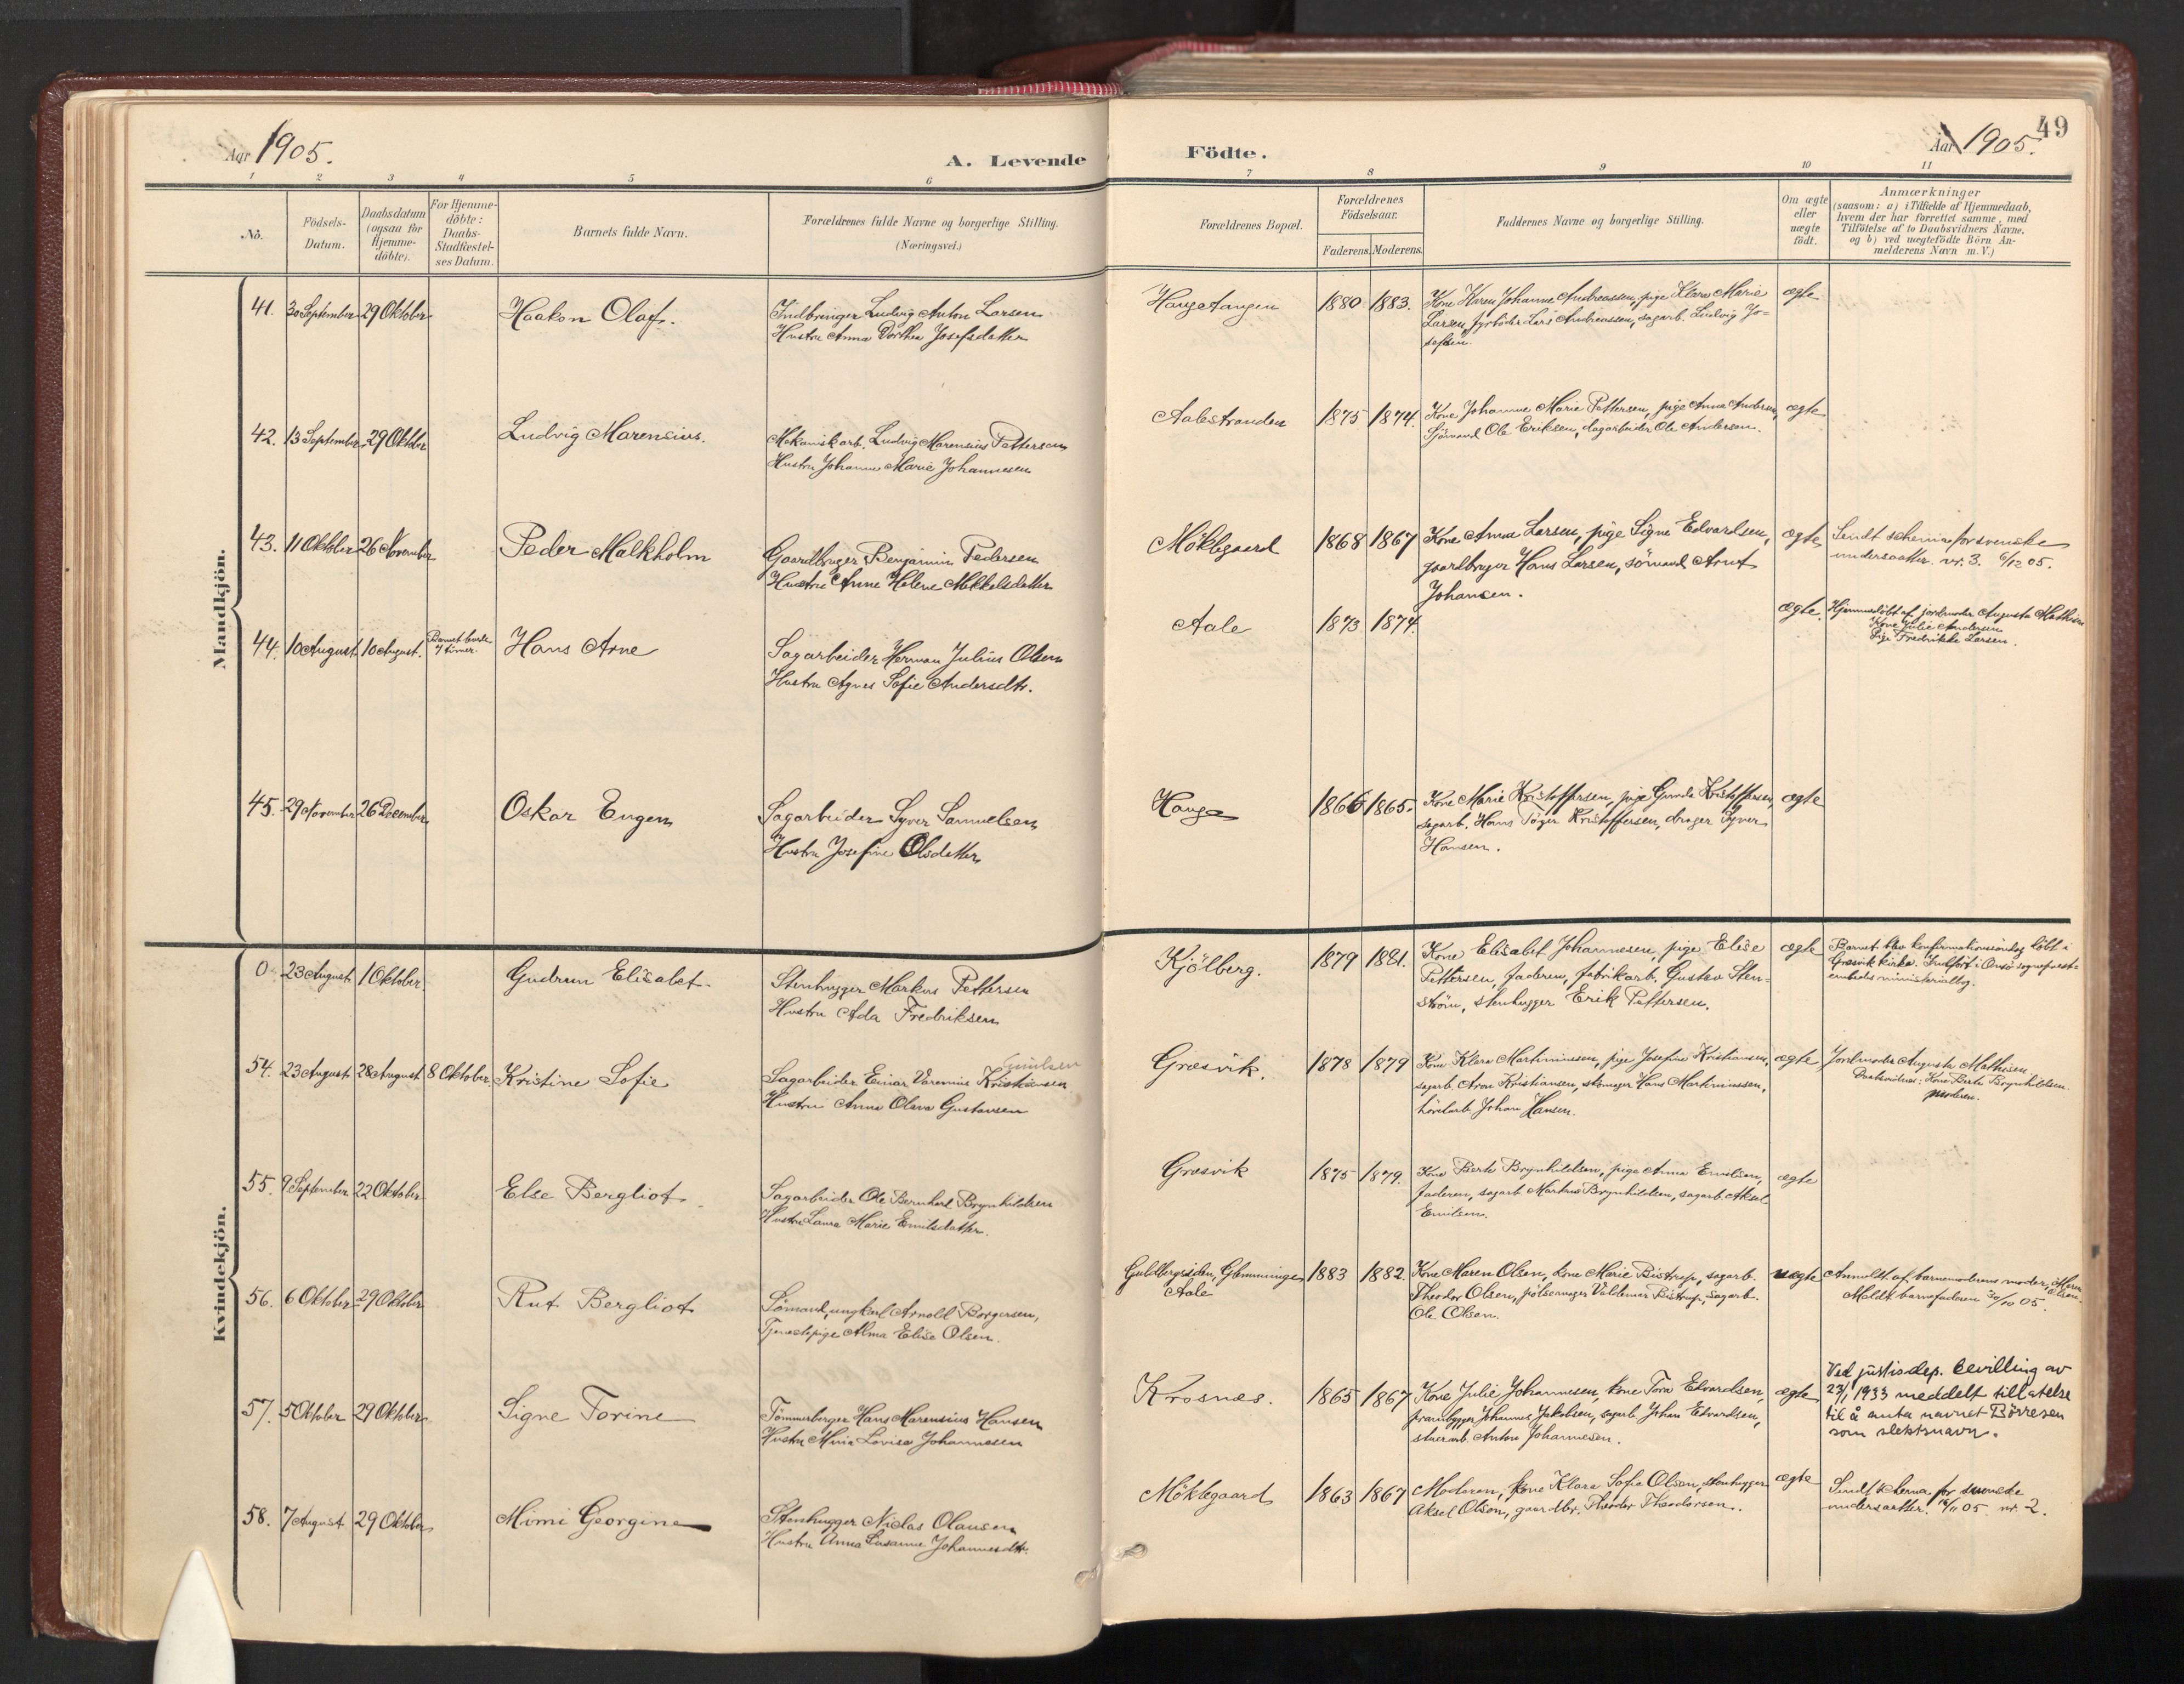 Aar 1905.
A. Levende
Födte.
Aar 1905.
49
1 2 3 4 5 6 7 8 9 10 11
No.
Födsels-
Datum.
Daabsdatum
(ogsaa for
Hjemme-
döbte).
For Hjemme-
döbte:
Daabs-
Stadfæstel-
ses Datum.
Barnets fulde Navn.
Forældrenes fulde Navne og borgerlige Stilling.
(Næringsvei.)
Forældrenes Bopæl.
Forældrenes
Födselsaar.
Faderens. Moderens.
Faddernes Navne og borgerlige Stilling.
Om ægte
eller
uægte
födt.
Anmærkninger
(saasom: a) i Tilfælde af Hjemmedaab,
hvem der har forrettet samme, med
Tilföielse af to Daabsvidners Navne.
og b) ved uægtefödte Börn An-
melderens Navn m. V.)
Mandkjön.
41. 30 September 29 Oktober Haakon Olaf.
Indbringer Ludvig Anton Larsen
Hustru Anna Dorthea Josefsdatter
Haugetangen 1880 1883.
Kone Karen Johanne Andreassen, pige Klara Marie
Larsen, fyrböder Lars Andreassen, sagarb. Ludvig Jo-
sefsen.
ægte
42. 13 September 29 Oktober Ludvig Marensius.
Mekanisk arb. Ludvig Marensius Pettersen
Hustru Johanne Marie Johannesen
Aalestranden 1875 1874.
Kone Johanne Marie Pettersen, pige Anna Andersen,
Sjömand Ole Eriksen, dagarbeider Ole Andersen.
ægte
43. 11 Oktober 26 November Peder Malkholm
Gaardbruger Benjamin Pedersen
Hustru Anne Helene Mikkelsdatter
Møklegaard 1868 1867
Kone Anna Larsen, pige Signe Edvardsen,
gaardbruger Hans Larsen, sömand Arnt
Johansen.
ægte
Sendt schema for svenske
undersaatter. nr. 3. 6/12 05.
44. 10 August 10 August. Barnet levede
7 timer.
Hans Arne
Sagarbeider Herman Julius Olsen
Hustru Agnes Sofie Andersdtr.
Aale 1873 1874.
ægte.
Hjemmedöbt af jordmoder Augusta Mathisen
Kone Julie Andersen
Pige Fredrikke Larsen.
45. 29 November 26 December Oskar Eugen
Sagarbeider Syver Samuelsen
Hustru Josefine Olsdatter
Hauge 1866 1865.
Kone Marie Kristoffersen, pige Gunda Kristoffersen,
sagarb. Hans Töger Kristoffersen, drager Syver
Hansen.
ægte
Kvindekjön.
0. 23 August 1 Oktober. Gudrun Elisabet.
Stenhugger Markus Pettersen
Hustru Ada Fredriksen
Kjölberg. 1879 1881.
Kone Elisabet Johannesen, pige Elise
Pettersen, faderen, fabrikarb. Gustav Sten-
ström, stenhugger Erik Pettersen.
ægte
Barnet blev konfirmationssöndag döbt i
Græsvik kirke. Indfört i Onsö sogneprest-
embeds ministerialbog.
54. 23 August 28 August 8 Oktober Kristine Sofie
Sagarbeider Einar Varenius Kristiansen
Hustru Anna Olava Gustavsen
Græsvik. 1878 1879
Kone Klara Martiniussen, pige Josefine Kristiansen,
sagarb. Aron Kristiansen, Hans Martiniussen,
Johan Hansen.
ægte
Jordmoder Augusta Mathisen
Daabsvidner: Kone Berte Brynhildsen
moderen.
55. 9 September 22 Oktober Else Bergliot
Sagarbeider Ole Bernhard Brynhildsen
Hustru Laura Marie Emilsdatter.
Græsvik 1875 1879.
Kone Berte Brynhildsen, pige Anna Emilsen,
faderen, sagarb. Markus Brynhildsen, sagarb. Aksel
Emilsen.
ægte
56. 6 Oktober 29 Oktober Rut Bergliot
Sömand, ungkarl Arnold Borgersen,
Tjenestepige Alma Elise Olsen.
Guldbergsiden, Glemminge
Aale
1883 1882.
Kone Maren Olsen, kone Marie Bistrup, sagarb.
Theodor Olsen, pölsemager Valdemar Bistrup, sagarb.
Ole Olsen.
uægte
Anmeldt af barnemoderens moder, Maren
Olsen.
Meldt barnefaderen 30/10 05.
57. 5 Oktober 29 Oktober Signe Torine
Tömmerberger Hans Marensius Hansen
Hustru Mina Lovise Johannesen
Krosnæs. 1865 1867
Kone Julie Johannesen, kone Tora Edvardsen,
prambygger Johannes Jakobsen, sagarb. Johan Edvardsen,
stuerarb. Anton Johannesen.
ægte
Ved justisdep. bevilling av
23/1 1933 meddelt tillatelse
til å anta navnet Börresen
som slektsnavn.
58. 7 August 29 Oktober Mimi Georgine
Stenhugger Niclas Olausen
Hustru Anna Susanne Johannesdtr.
Møklegaard 1863 1867
Moderen, kone Klara Sofie Olsen, stenhugger
Aksel Olsen, gaardbr. Theodor Theodorsen.
ægte
Sendt schema for svenske
undersaatter. 05 nr. 2.